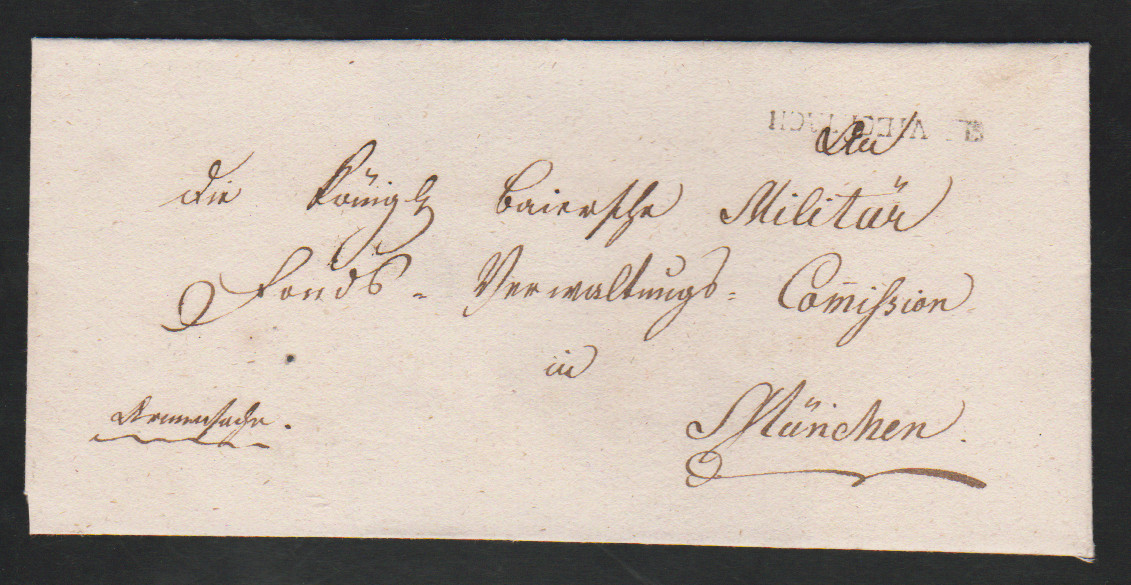 VIECHTACH
An
die Königl Baiersche Militär
Fonds = Verwaltungs = Commission
in
München.
Armensache.